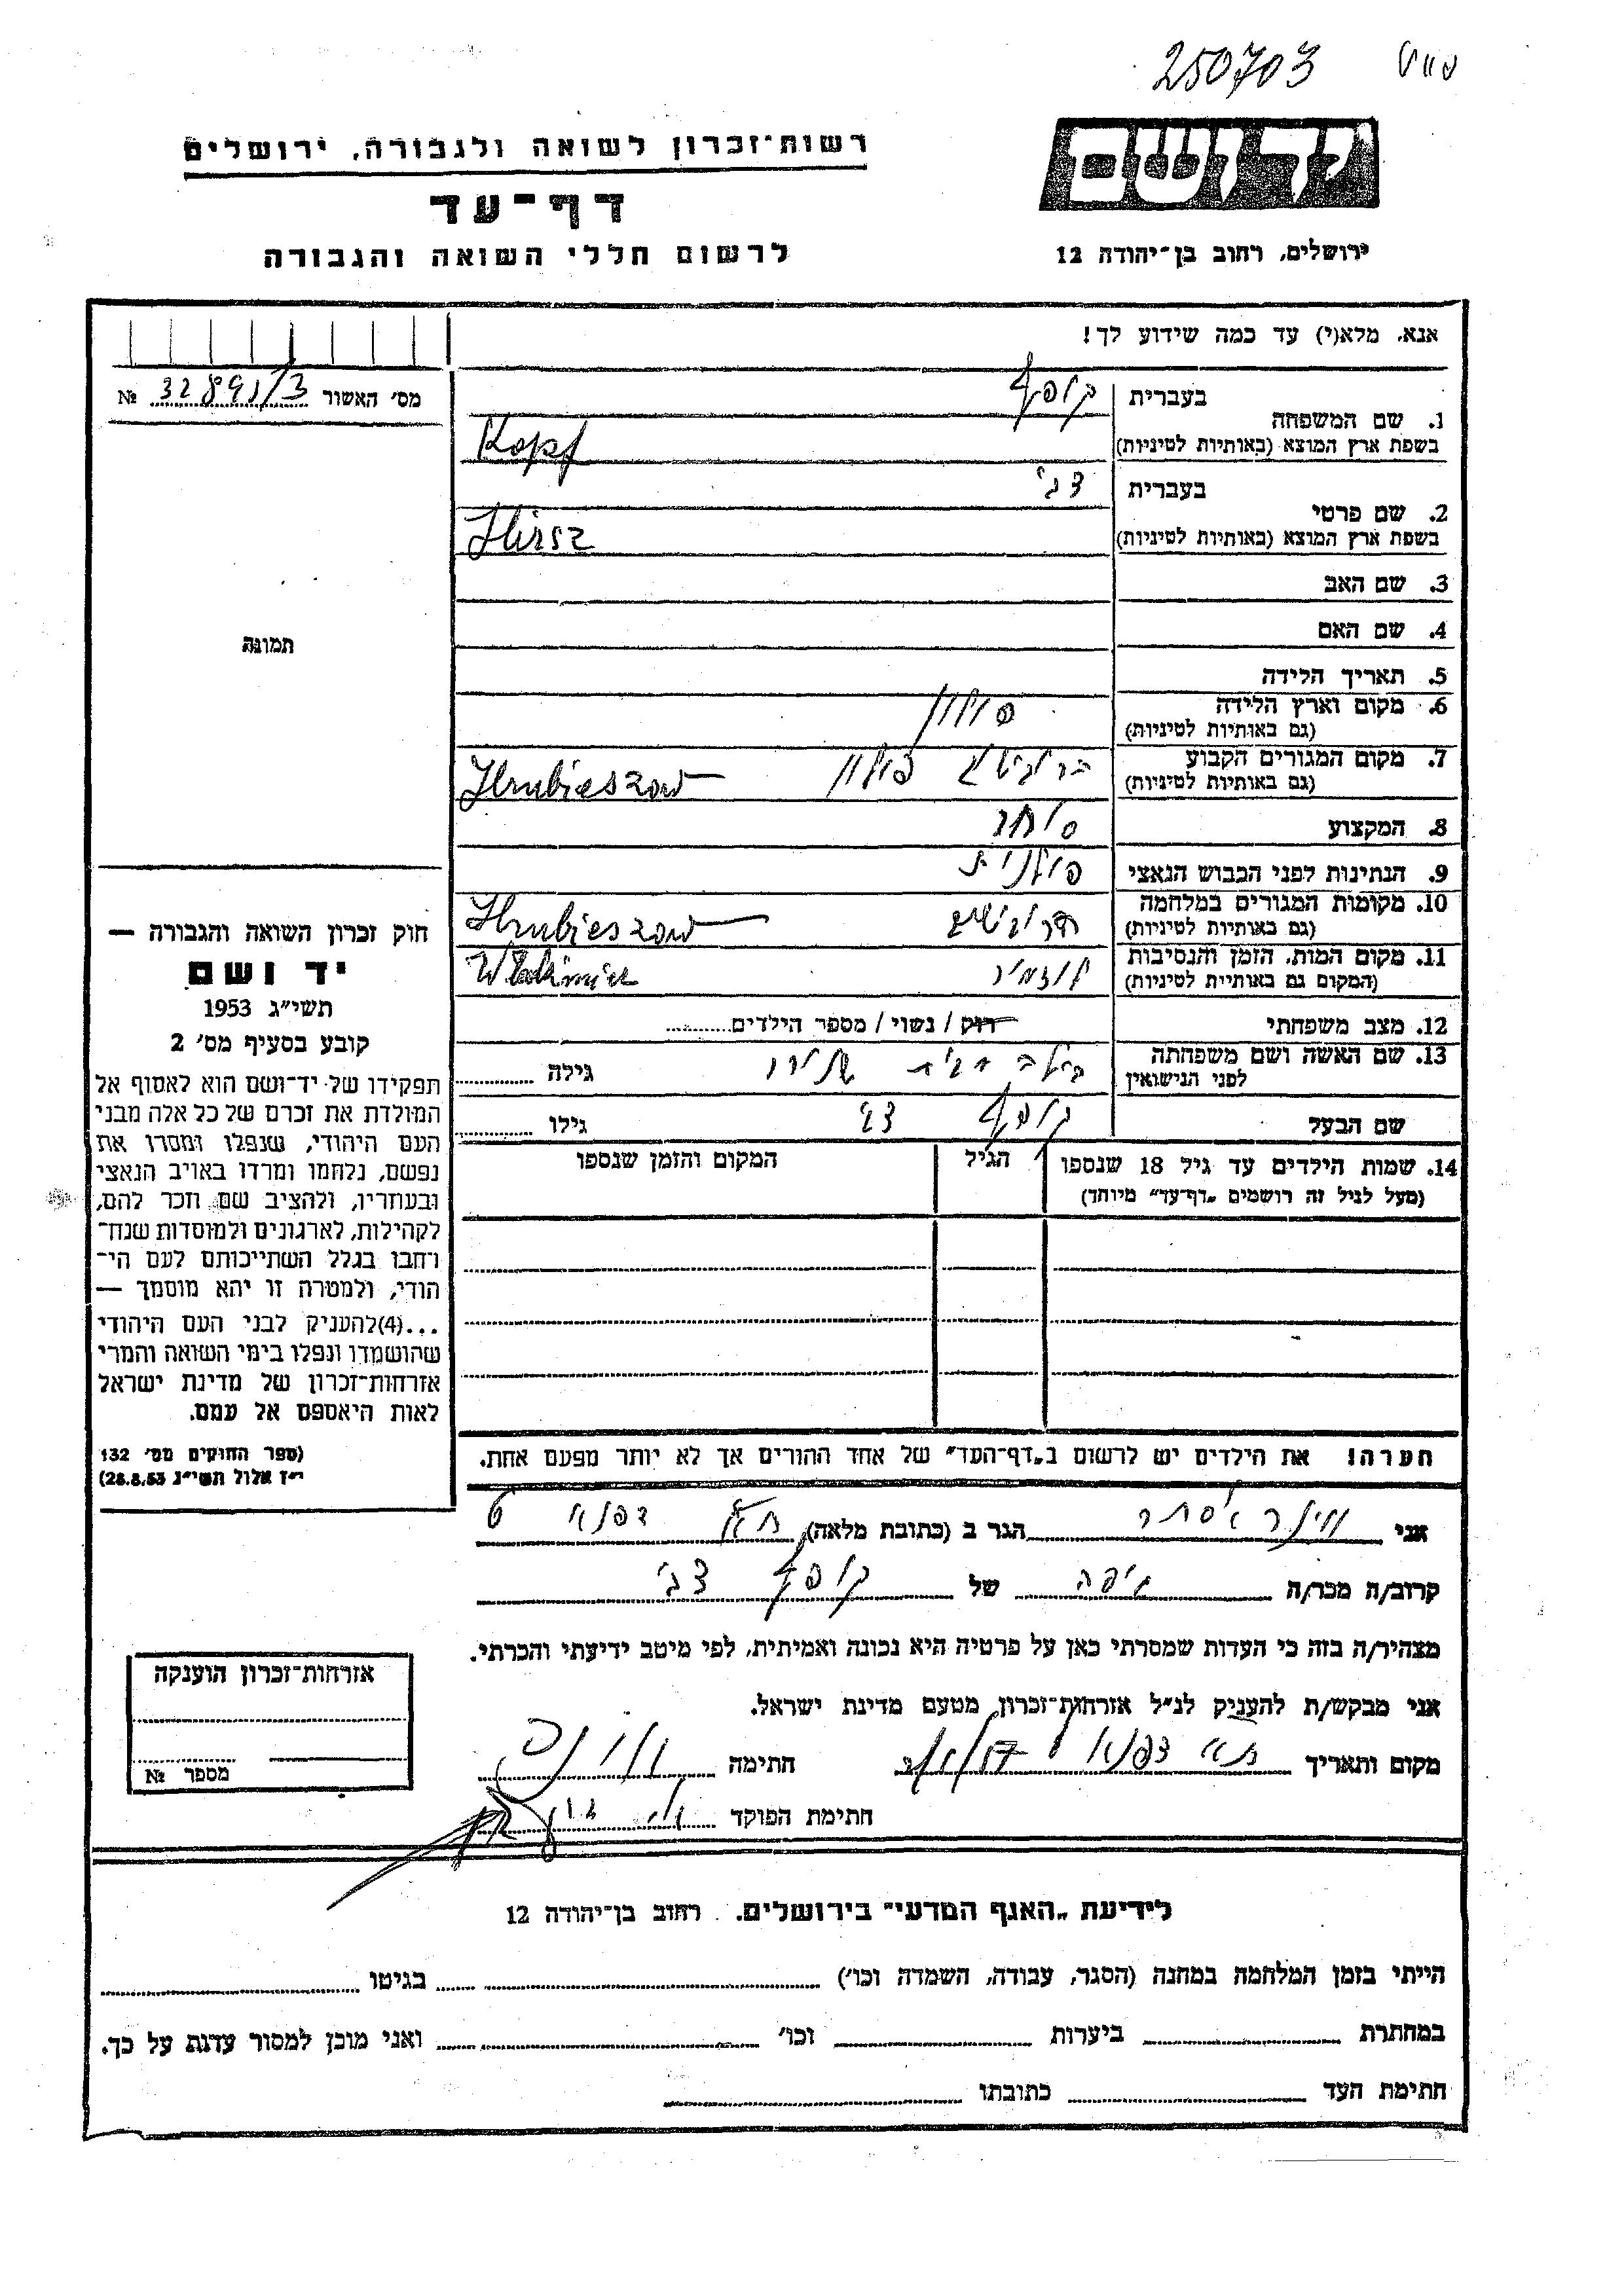 250703
רשות־זכרון לשואה ולגבורה, ירושלים
יד ושם
דף־עד
לרשום חללי השואה והגבורה
ירושלים, רחוב בן־יהודה 12
אנא, מלא(י) עד כמה שידוע לך!
מס' האשור 32891/3 №
1. שם המשפחה
בעברית קופף
בשפת ארץ המוצא (באותיות לטיניות) Kopf
2. שם פרטי
בעברית צבי
בשפת ארץ המוצא (באותיות לטיניות) Hirsz
3. שם האב
4. שם האם
תמונה
5. תאריך הלידה
6. מקום וארץ הלידה
(גם באותיות לטיניות) פולין
7. מקום המגורים הקבוע
(גם באותיות לטיניות) פולין Hrubieszow
8. המקצוע סוחר
9. הנתינות לפני הכבוש הנאצי פולנית
10. מקומות המגורים במלחמה
(גם באותיות לטיניות) Hrubieszow
11. מקום המות, הזמן והנסיבות
(המקום גם באותיית לטיניות)
12. מצב משפחתי רוק / נשוי / מספר הילדים
13. שם האשה ושם משפחתה
לפני הנישואין גילה
שם הבעל קופף צבי גילו
14. שמות הילדים עד גיל 18 שנספו
(מעל לגיל זה רושמים „דף־עד" מיוחד)
הגיל
המקום והזמן שנספו
חוק זכרון השואה והגבורה —
יד ושם
תשי"ג 1953
קובע בסעיף מס' 2
תפקידו של יד־ושם הוא לאסוף אל
המולדת את זכרם של כל אלה מבני
העם היהודי, שנפלו ומסרו את
נפשם, נלחמו ומרדו באויב הנאצי
ובעוזריו, ולהציב שם וזכר להם,
לקהילות, לארגונים ולמוסדות שנח־
רחבו בגלל השתייכותם לעם הי־
הודי, ולמטרה זו יהא מוסמך —
...(4)להעניק לבני העם היהודי
שהושמדו ונפלו בימי השואה והמרי
אזרחות־זכרון של מדינת ישראל
לאות היאספם אל עמם.
(ספר החוקים מס' 132
י"ז אלול תשי"ג 28.8.53)
הערה! את הילדים יש לרשום ב„דף־העד" של אחד ההורים אך לא יותר מפעם אחת.
אני אסתר הגר ב (כתובת מלאה) ת"א
קרוב/ה מכר/ה של קופף צבי
מצהיר/ה בזה כי העדות שמסרתי כאן על פרטיה היא נכונה ואמיתית, לפי מיטב ידיעתי והכרתי.
אני מבקש/ת להעניק לנ"ל אזרחות־זכרון מטעם מדינת ישראל.
מקום ותאריך חתימה
חתימת הפוקד
אזרחות־זכרון הוענקה
מספר №
לידיעת „האגף המדעי" בירושלים. רחוב בן־יהודה 12
הייתי בזמן המלחמה במחנה (הסגר, עבודה, השמדה וכו') בגיטו
במחתרת ביערות וכו' ואני מוכן למסור עדות על כך.
חתימת העד כתובתו